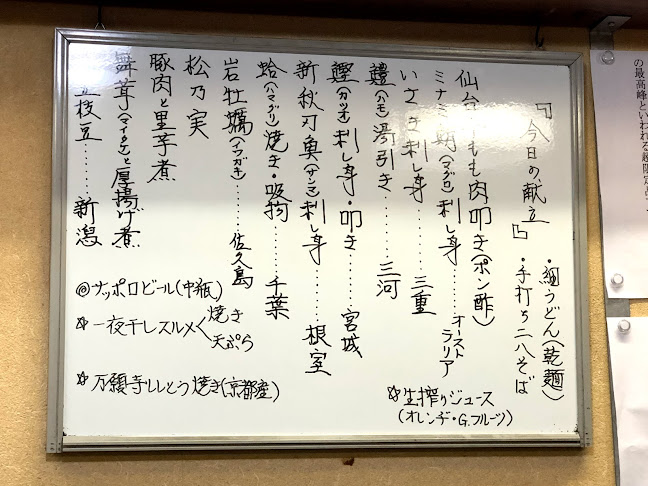 『今日の献立』
・細うどん(乾麺)
・手打ち二八そば
仙台牛もも肉叩き(ポン酢)
ミナミ鮪(マグロ)刺し身……オーストラリア
いさき刺し身……三重
鱧(ハモ)湯引き……三河
鰹(カツオ)刺し身・叩き……宮城
新秋刀魚(サンマ)刺し身……根室
蛤(ハマグリ)焼き・吸物……千葉
岩牡蠣(イワガキ)……佐久島
松乃実
豚肉と里芋煮
舞茸(マイタケ)と厚揚げ煮
枝豆……新潟
◎サッポロビール(中瓶)
☆一夜干しスルメ<焼き
天ぷら
☆万願寺ししとう焼き(京都産)
☆生搾りジュース
(オレンヂ・G.フルーツ)
の最高峰といわれる超限定